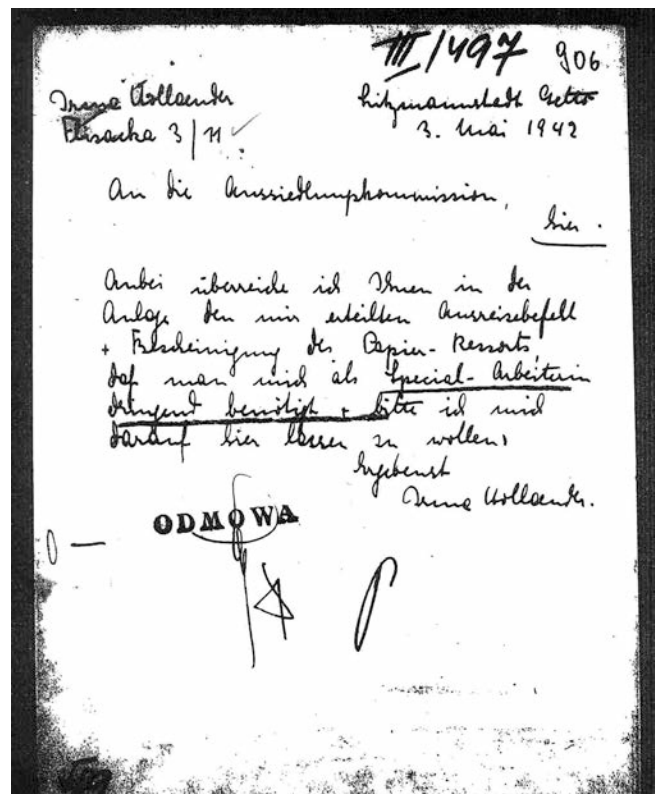 III/497 906
Irma Hollaender Litzmannstadt Getto
3/11 3. Mai 1942
An die Aussiedlungskommission,
hier.
Anbei überreiche ich Ihnen in der
Anlage den mir erteilten Ausreisebefehl
+ Bescheinigung des Papier-Ressorts,
daß man mich als Special-Arbeiterin
dringend benötigt + bitte ich mich
darauf hier lassen zu wollen.
Ergebenst
Irma Hollaender.
ODMOWA